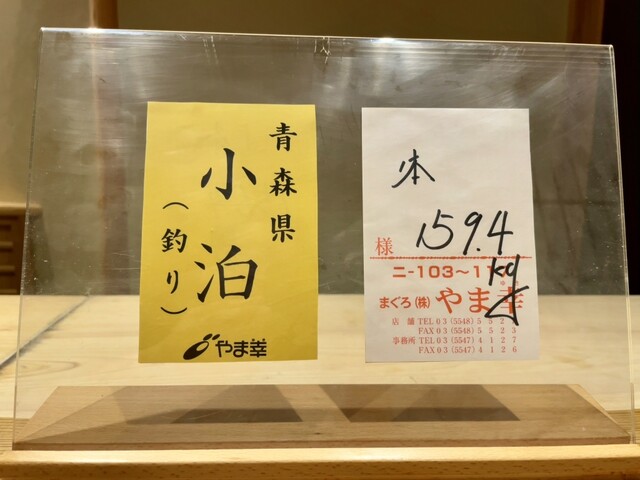 青森県
小泊
(釣り)
やま幸
本
159.4
kg
様
ニ-103~11
まぐろ(株)やま幸
店舗 TEL 03(5548)552
FAX 03(5548)5523
事務所 TEL 03(5547)4127
FAX 03(5547)4126